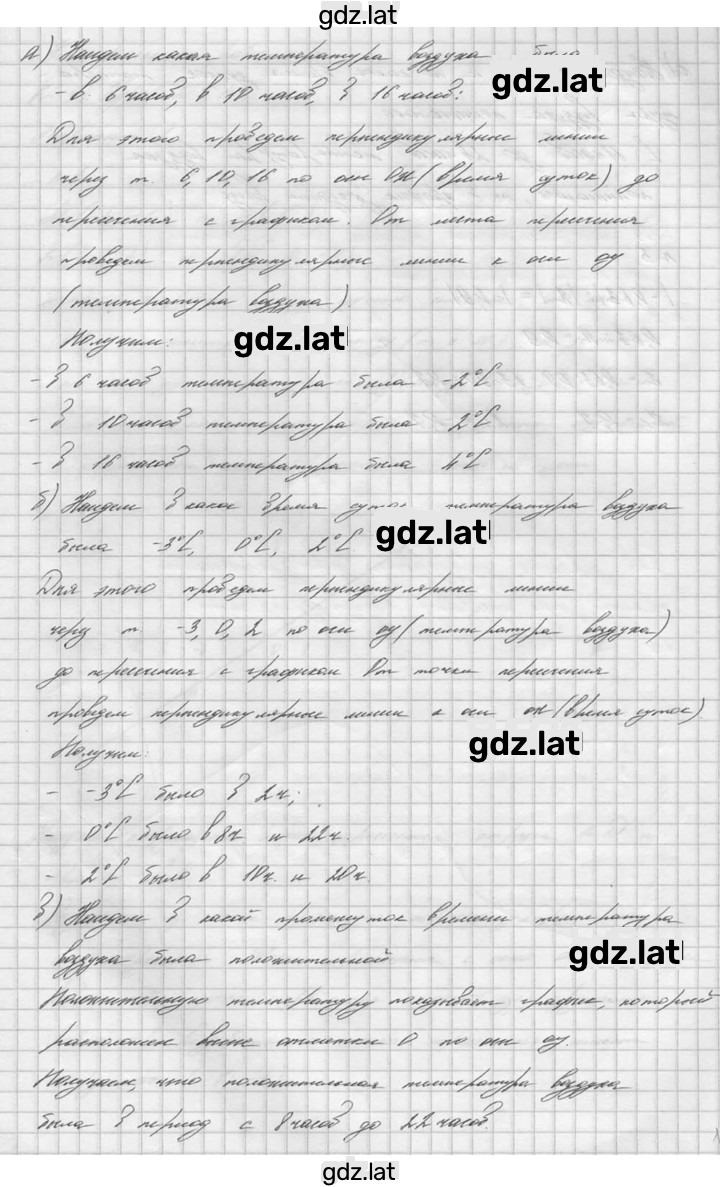 gdz.lat
а) Найдем какая температура воздуха была
gdz.lat
- в 6 часов, в 10 часов, в 16 часов:
Для этого проведем перпендикулярные линии
через т. 6, 10, 16 по оси Ох (время суток) до
пересечения с графиком. От места пересечения
проведем перпендикулярные линии к оси оу
(температура воздуха).
Получим:
gdz.lat
- в 6 часов температура была -2°С
- в 10 часов температура была 2°С
- в 16 часов температура была 4°С
б) Найдем в какое время суток температура воздуха
была -3°С, 0°С, 2°С.
gdz.lat
Для этого проведем перпендикулярные линии
через т. -3, 0, 2 по оси оу (температура воздуха)
до пересечения с графиком От точки пересечения
проведем перпендикулярные линии к оси ох (время суток).
Получим:
gdz.lat
- -3°С было в 2ч;
- 0°С было в 8ч и 22ч.
- 2°С было в 10ч. и 20ч.
в) Найдем в какой промежуток времени температура
воздуха была положительной
gdz.lat
Положительную температуру показывает график, который
расположен выше отметки 0 по оси оу.
Получаем, что положительная температура воздуха
была в период с 8 часов до 22 часов.
gdz.lat